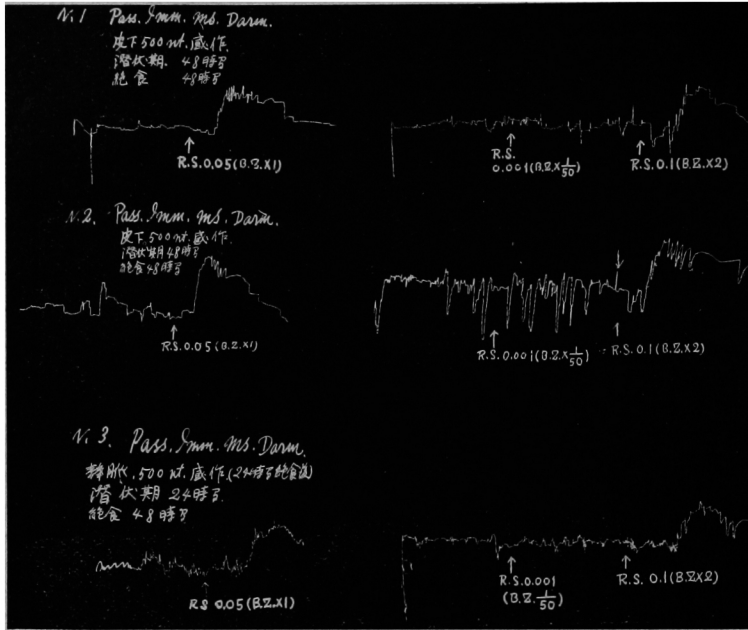 N. 1 Pass. Imm. Ms. Darm.
皮下 500 nt. 感作.
潜伏期. 48時乃
絶食 48時乃
R.S. 0.05 (B.Z.×1)
R.S.
0.001 (B.Z.×1/50)
R.S. 0.1 (B.Z.×2)
N. 2. Pass. Imm. Ms. Darm.
皮下 500 nt. 感作.
潜伏期 48時乃
絶食 48時乃
R.S. 0.05 (B.Z.×1)
R.S. 0.001 (B.Z.×1/50)
R.S. 0.1 (B.Z.×2)
N. 3. Pass. Imm. Ms. Darm.
500 nt. 感作. (24時乃絶食後)
潜伏期 24時乃.
絶食 48時乃
RS 0.05 (B.Z.×1)
R.S. 0.001
(B.Z. 1/50)
R.S. 0.1 (B.Z×2)